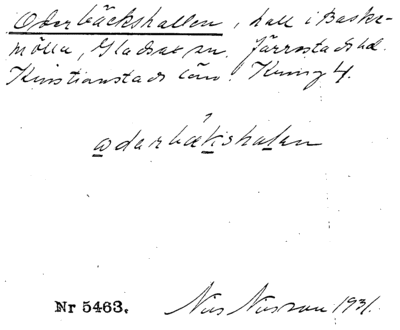 Oderbäckshallen, hall i Baske-
mölla, Gladsax sn. Järrestads hd.
Kristianstads län. Kuning 4.
oderbækshalan
Nr 5463. Nils Nilsson 1931.